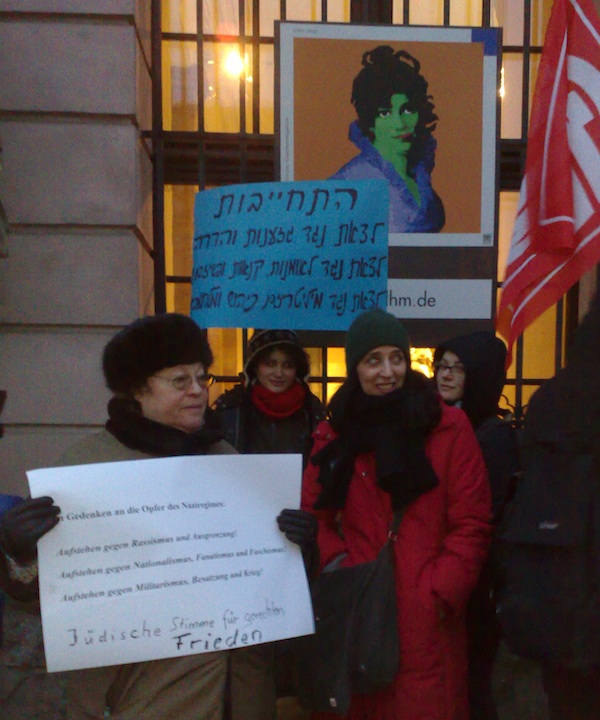 התחייבות
לצאת נגד גזענות והדרה
לצאת נגד לאומנות קנאות
לצאת נגד מיליטריזם כיבוש
hm.de
Gedenken an die Opfer des Naziregimes:
Aufstehen gegen Rassismus und Ausgrenzung!
Aufstehen gegen Nationalismus, Fanatismus und Faschismus!
Aufstehen gegen Militarismus, Besatzung und Krieg!
Jüdische Stimme für gerechten
Frieden